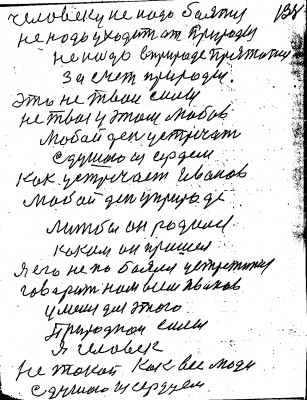 138
человеку не надо боятся
не надо уходит от природы
не надо в природе прятатся
за счет природы.
это не твои силы
не твоя у этом любов
любой ден устречат
с душою и сердем
как устречает Иванов
любой ден у природе
он родился
каким он пришел
я его не боялся устретится
говорит нам всем Иванов
умения для этого
природной силы
я человек
не такой как все люди
с душою и сердцем